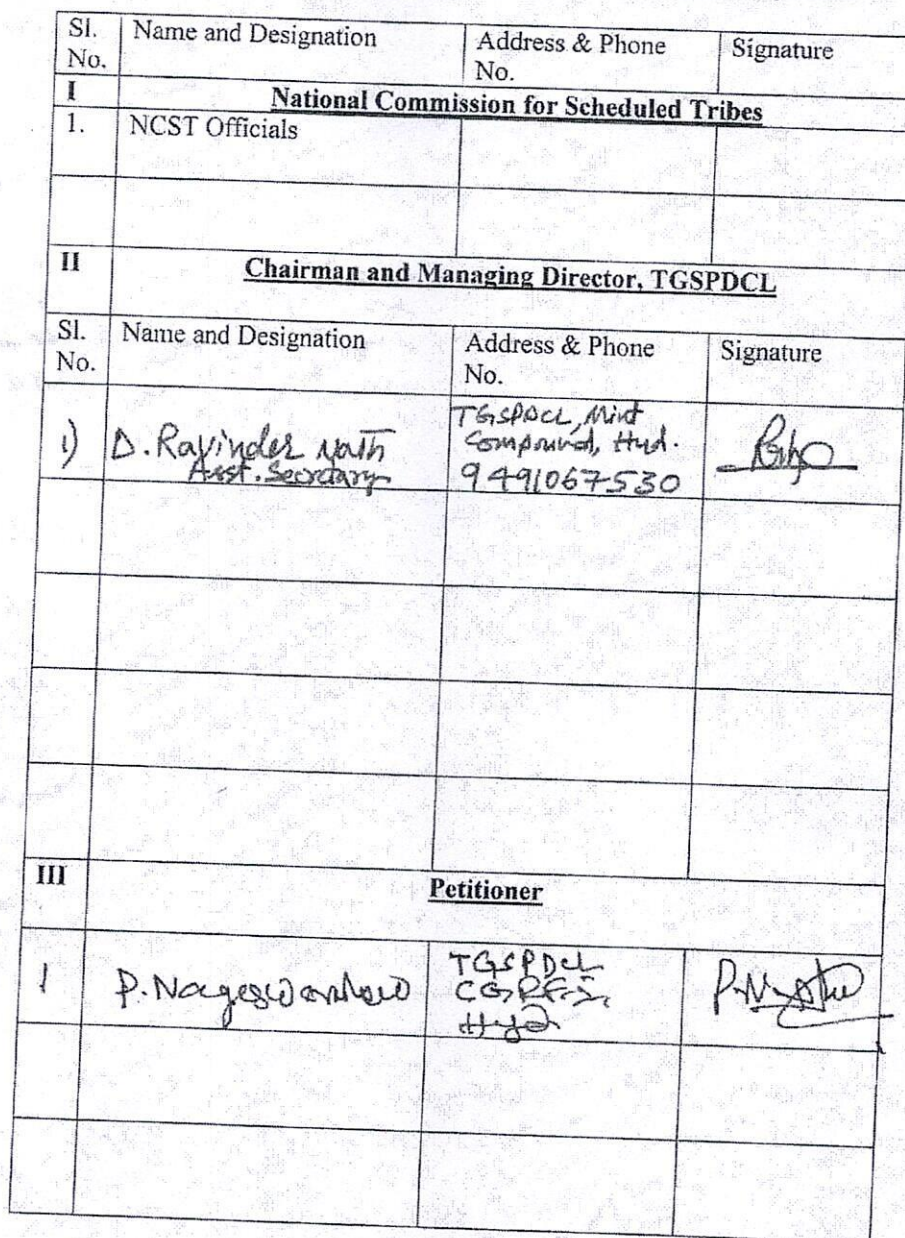 Sl. No. Name and Designation Address & Phone No. Signature
I National Commission for Scheduled Tribes
1. NCST Officials
II Chairman and Managing Director, TGSPDCL
Sl. No. Name and Designation Address & Phone No. Signature
1) D. Ravinder Nath TGSPDCL, Mint
Asst. Secretary Compound, Hyd.
9491067530
III Petitioner
1 P. Nageswarao TGSPDCL
CGRF-I,
Hyd